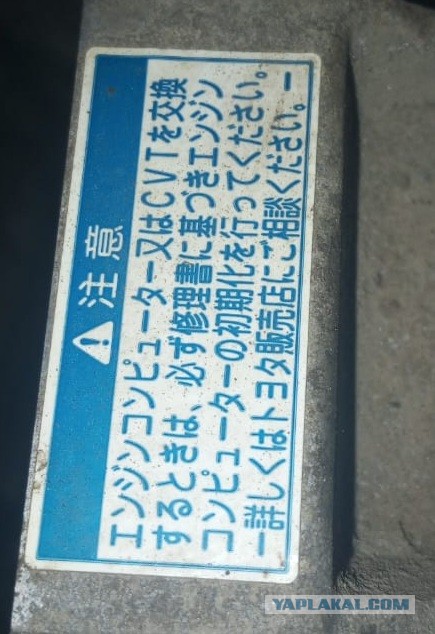 ⚠注意
エンジンコンピューター又はCVTを交換
するときは、必ず修理書に基づきエンジン
コンピューターの初期化を行ってください。
ー詳しくはトヨタ販売店にご相談ください。ー
YAPLAKAL.COM